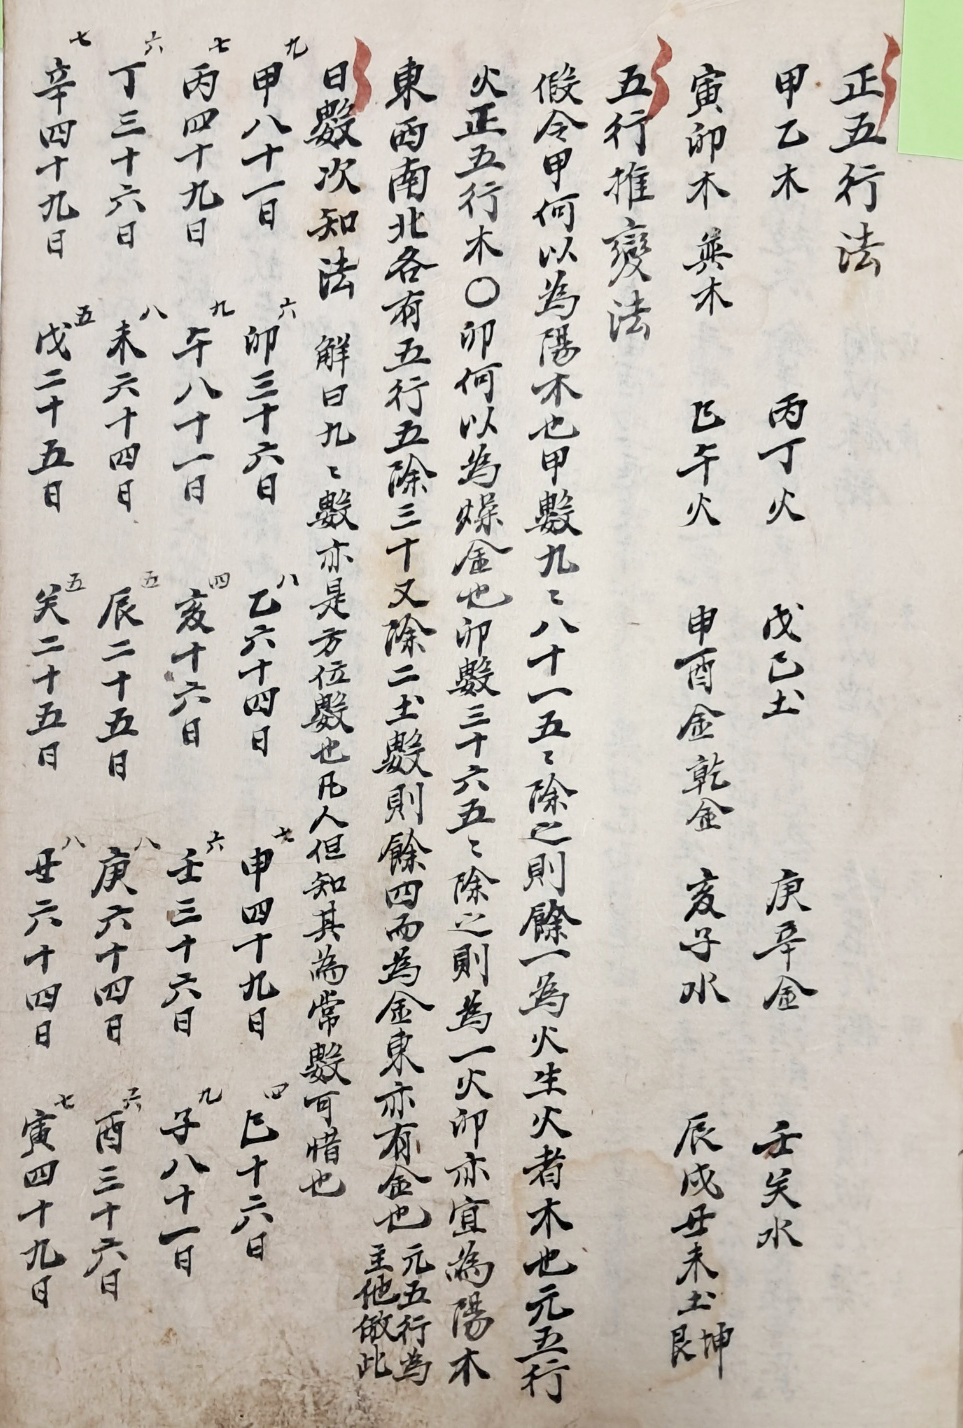 正五行法
甲乙木 丙丁火 戊己土 庚辛金 壬癸水
寅卯木 巽木 巳午火 申酉金 乾金 亥子水 辰戌丑未土 坤艮
五行推變法
假令甲何以為陽木也甲數九〻八十一五〻除之則餘一為火生火者木也元五行
火正五行木〇卯何以為燥金也卯數三十六五〻除之則為一火卯亦宜為陽木
東西南北各有五行五除三十又除二土數則餘四而為金東亦有金也 元五行為主他倣此
日數次知法 解曰九〻數亦是方位數也凡人但知其為常數可惜也
九甲八十一日 六卯三十六日 八乙六十四日 七申四十九日 四巳十六日
七丙四十九日 九午八十一日 四亥十六日 六壬三十六日 九子八十一日
六丁三十六日 八未六十四日 五辰二十五日 八庚六十四日 六酉三十六日
七辛四十九日 五戊二十五日 五癸二十五日 八丑六十四日 七寅四十九日